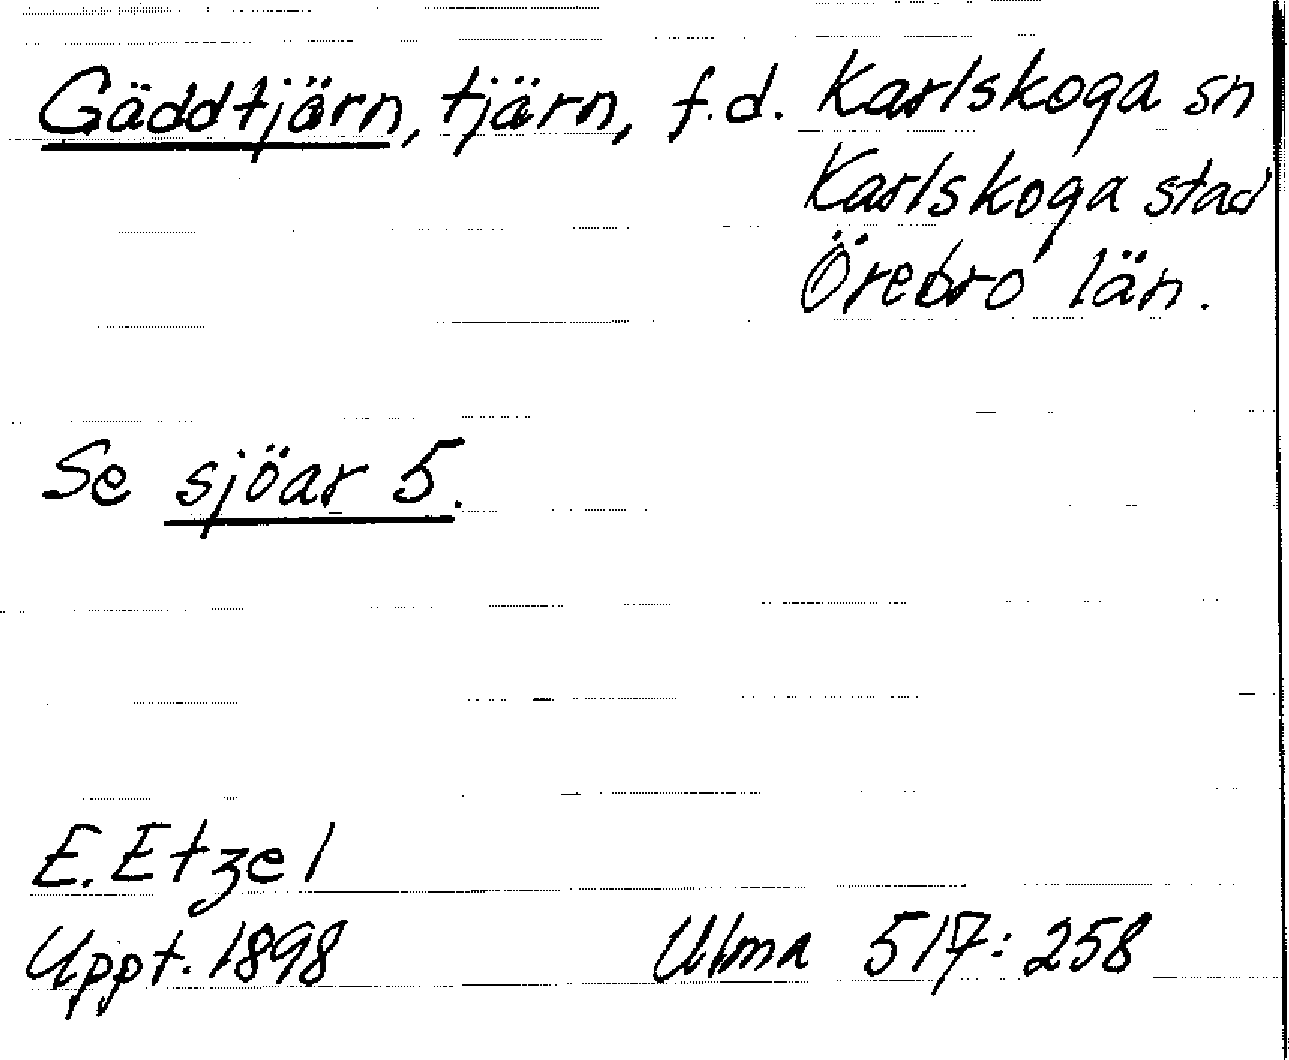 Gäddtjärn, tjärn, f.d. Karlskoga sn
Karlskoga stad
Örebro län.
Se sjöar 5.
E. Etzel
Uppt. 1898 Ulma 517:258